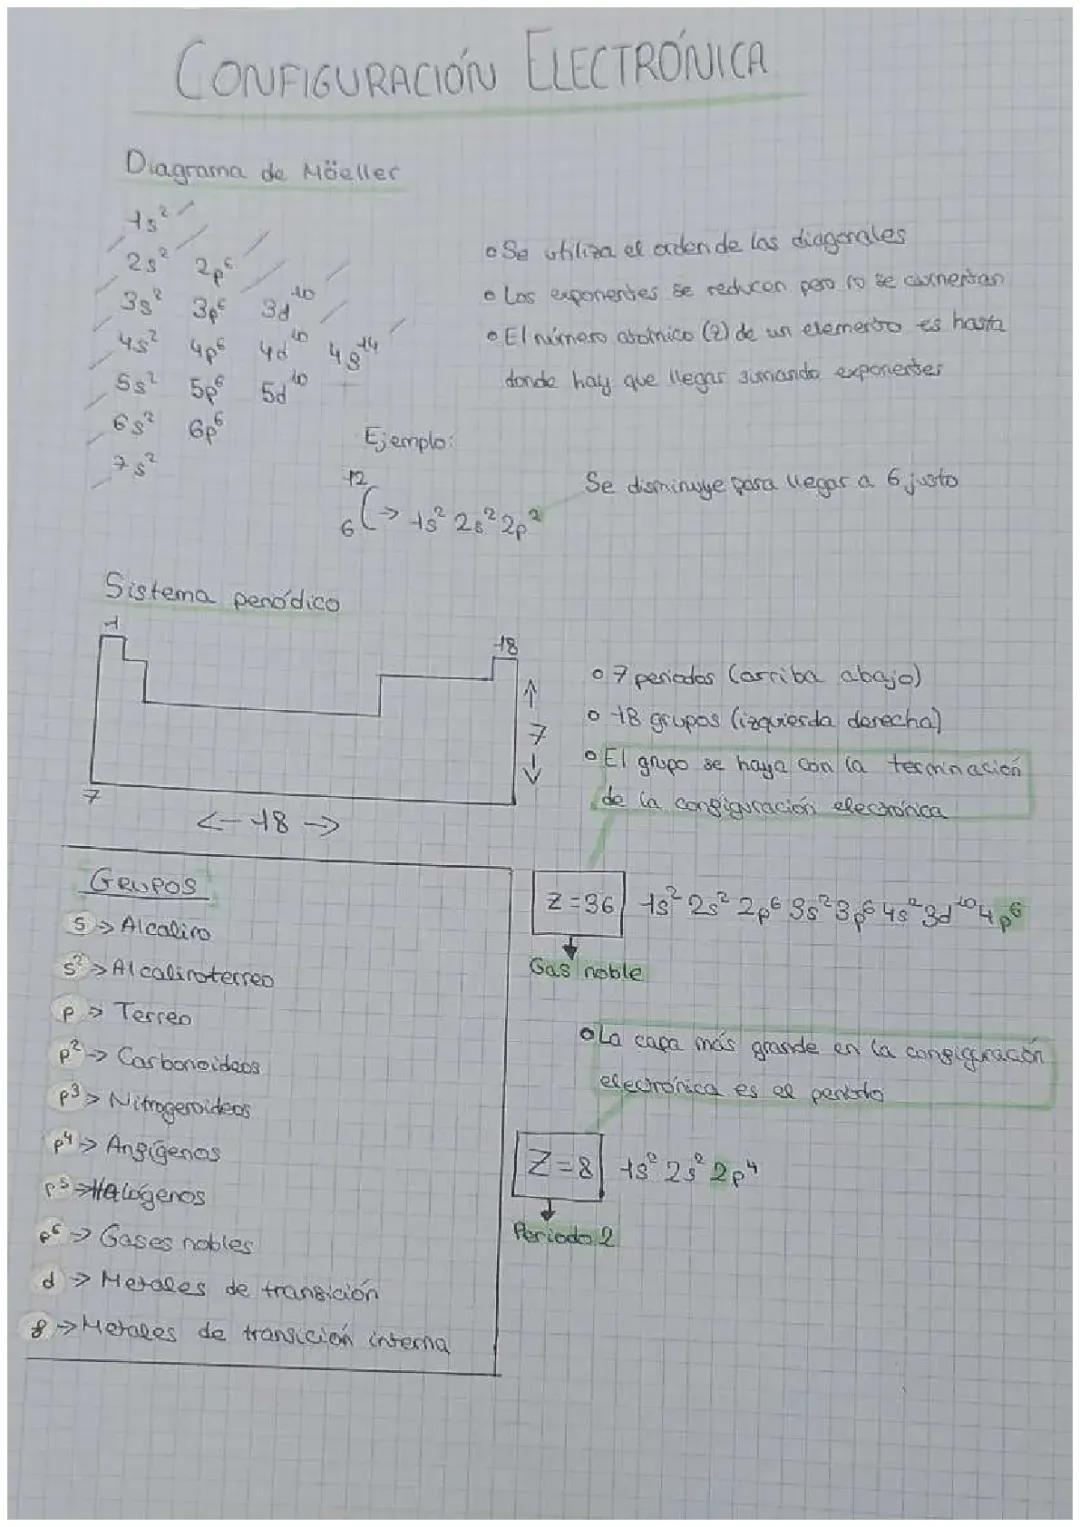 CONFIGURACIÓN ELECTRÓNICA
Diagrama de Möeller
1s²
2s² 2p⁶
3s² 3p⁶ 3d¹⁰
4s² 4p⁶ 4d¹⁰ 4f¹⁴
5s² 5p⁶ 5d¹⁰
6s² 6p⁶
7s²
• Se utiliza el orden de las diagonales
• Los exponentes se reducen pero no se aumentan
• El número atómico (Z) de un elemento es hasta
donde hay que llegar sumando exponentes
Ejemplo:
12
6 C → 1s² 2s² 2p²
Se disminuye para llegar a 6 justo
Sistema periódico
1
18
7
7
← 18 →
• 7 periodos (arriba abajo)
• 18 grupos (izquierda derecha)
• El grupo se haya con la terminación
de la configuración electrónica
Z=36 1s² 2s² 2p⁶ 3s² 3p⁶ 4s² 3d¹⁰ 4p⁶
Gas noble
• La capa más grande en la configuración
electrónica es el periodo
Z=8 1s² 2s² 2p⁴
Periodo 2
GRUPOS
s → Alcalino
s² → Alcalinoterreo
p → Terreo
p² → Carbonoideos
p³ → Nitrogenoideos
p⁴ → Anfígenos
p⁵ → Halógenos
p⁶ → Gases nobles
d → Metales de transición
f → Metales de transición interna